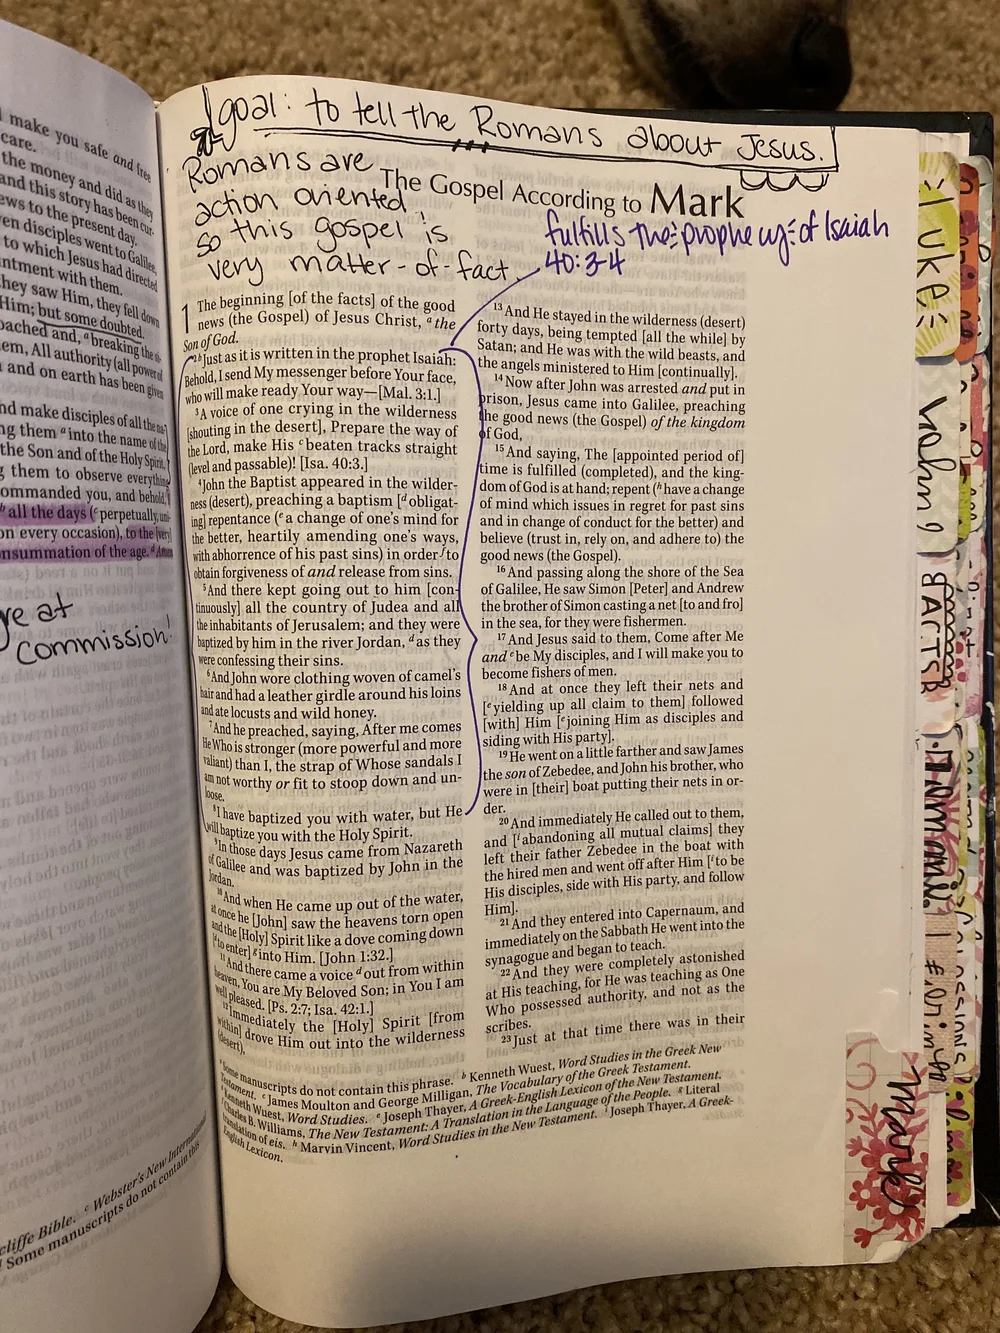 make you safe and free
care.
the money and did as they
and this story has been cur-
ews to the present day.
en disciples went to Galilee,
to which Jesus had directed
intment with them.
hey saw Him, they fell down
Him; but some doubted.
oached and, a breaking the si-
em, All authority (all power of
and on earth has been given
nd make disciples of all the na-
ng them a into the name of the
the Son and of the Holy Spirit,
them to observe everything
ommanded you, and behold,
b all the days (c perpetually, uni-
on every occasion), to the [very]
onsummation of the age. d Amen
reat
commission!
cliffe Bible. c Webster's New International
Some manuscripts do not contain this
goal: to tell the Romans about Jesus.
Romans are
action oriented
so this gospel is
very matter-of-fact
The Gospel According to Mark
fulfills the prophecy of Isaiah
40:3-4
1 The beginning [of the facts] of the good
news (the Gospel) of Jesus Christ, a the
Son of God.
2 b Just as it is written in the prophet Isaiah:
Behold, I send My messenger before Your face,
who will make ready Your way—[Mal. 3:1.]
3 A voice of one crying in the wilderness
[shouting in the desert], Prepare the way of
the Lord, make His c beaten tracks straight
(level and passable)! [Isa. 40:3.]
4 John the Baptist appeared in the wilder-
ness (desert), preaching a baptism [d obligat-
ing] repentance (e a change of one's mind for
the better, heartily amending one's ways,
with abhorrence of his past sins) in order f to
obtain forgiveness of and release from sins.
5 And there kept going out to him [con-
tinuously] all the country of Judea and all
the inhabitants of Jerusalem; and they were
baptized by him in the river Jordan, d as they
were confessing their sins.
6 And John wore clothing woven of camel's
hair and had a leather girdle around his loins
and ate locusts and wild honey.
7 And he preached, saying, After me comes
He Who is stronger (more powerful and more
valiant) than I, the strap of Whose sandals I
am not worthy or fit to stoop down and un-
loose.
8 I have baptized you with water, but He
will baptize you with the Holy Spirit.
9 In those days Jesus came from Nazareth
of Galilee and was baptized by John in the
Jordan.
10 And when He came up out of the water,
at once he [John] saw the heavens torn open
and the [Holy] Spirit like a dove coming down
[f to enter] g into Him. [John 1:32.]
11 And there came a voice d out from within
heaven, You are My Beloved Son; in You I am
well pleased. [Ps. 2:7; Isa. 42:1.]
12 Immediately the [Holy] Spirit [from
within] drove Him out into the wilderness
(desert),
13 And He stayed in the wilderness (desert)
forty days, being tempted [all the while] by
Satan; and He was with the wild beasts, and
the angels ministered to Him [continually].
14 Now after John was arrested and put in
prison, Jesus came into Galilee, preaching
the good news (the Gospel) of the kingdom
of God,
15 And saying, The [appointed period of]
time is fulfilled (completed), and the king-
dom of God is at hand; repent (h have a change
of mind which issues in regret for past sins
and in change of conduct for the better) and
believe (trust in, rely on, and adhere to) the
good news (the Gospel).
16 And passing along the shore of the Sea
of Galilee, He saw Simon [Peter] and Andrew
the brother of Simon casting a net [to and fro]
in the sea, for they were fishermen.
17 And Jesus said to them, Come after Me
and e be My disciples, and I will make you to
become fishers of men.
18 And at once they left their nets and
[e yielding up all claim to them] followed
[with] Him [e joining Him as disciples and
siding with His party].
19 He went on a little farther and saw James
the son of Zebedee, and John his brother, who
were in [their] boat putting their nets in or-
der.
20 And immediately He called out to them,
and [i abandoning all mutual claims] they
left their father Zebedee in the boat with
the hired men and went off after Him [i to be
His disciples, side with His party, and follow
Him].
21 And they entered into Capernaum, and
immediately on the Sabbath He went into the
synagogue and began to teach.
22 And they were completely astonished
at His teaching, for He was teaching as One
Who possessed authority, and not as the
scribes.
23 Just at that time there was in their
a Some manuscripts do not contain this phrase. b Kenneth Wuest, Word Studies in the Greek New
Testament. c James Moulton and George Milligan, The Vocabulary of the Greek Testament.
d Kenneth Wuest, Word Studies. e Joseph Thayer, A Greek-English Lexicon of the New Testament.
f Charles B. Williams, The New Testament: A Translation in the Language of the People. g Literal
translation of eis. h Marvin Vincent, Word Studies in the New Testament. i Joseph Thayer, A Greek-
English Lexicon.
LUKE
John
ACTS
Romans
Mark